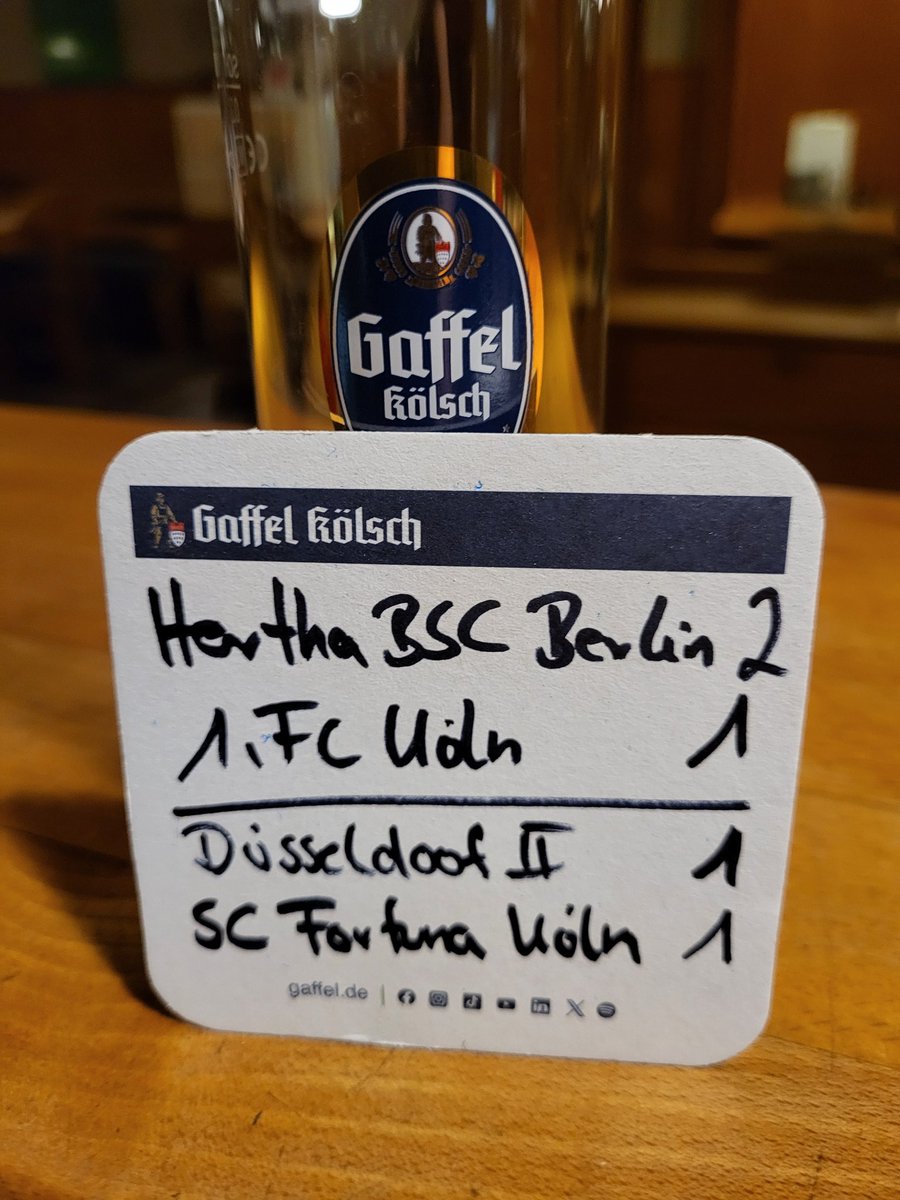 Gaffel
Kölsch
Gaffel Kölsch
Hertha BSC Berlin 2
1. FC Köln 1
Düsseldoof II 1
SC Fortuna Köln 1
gaffel.de